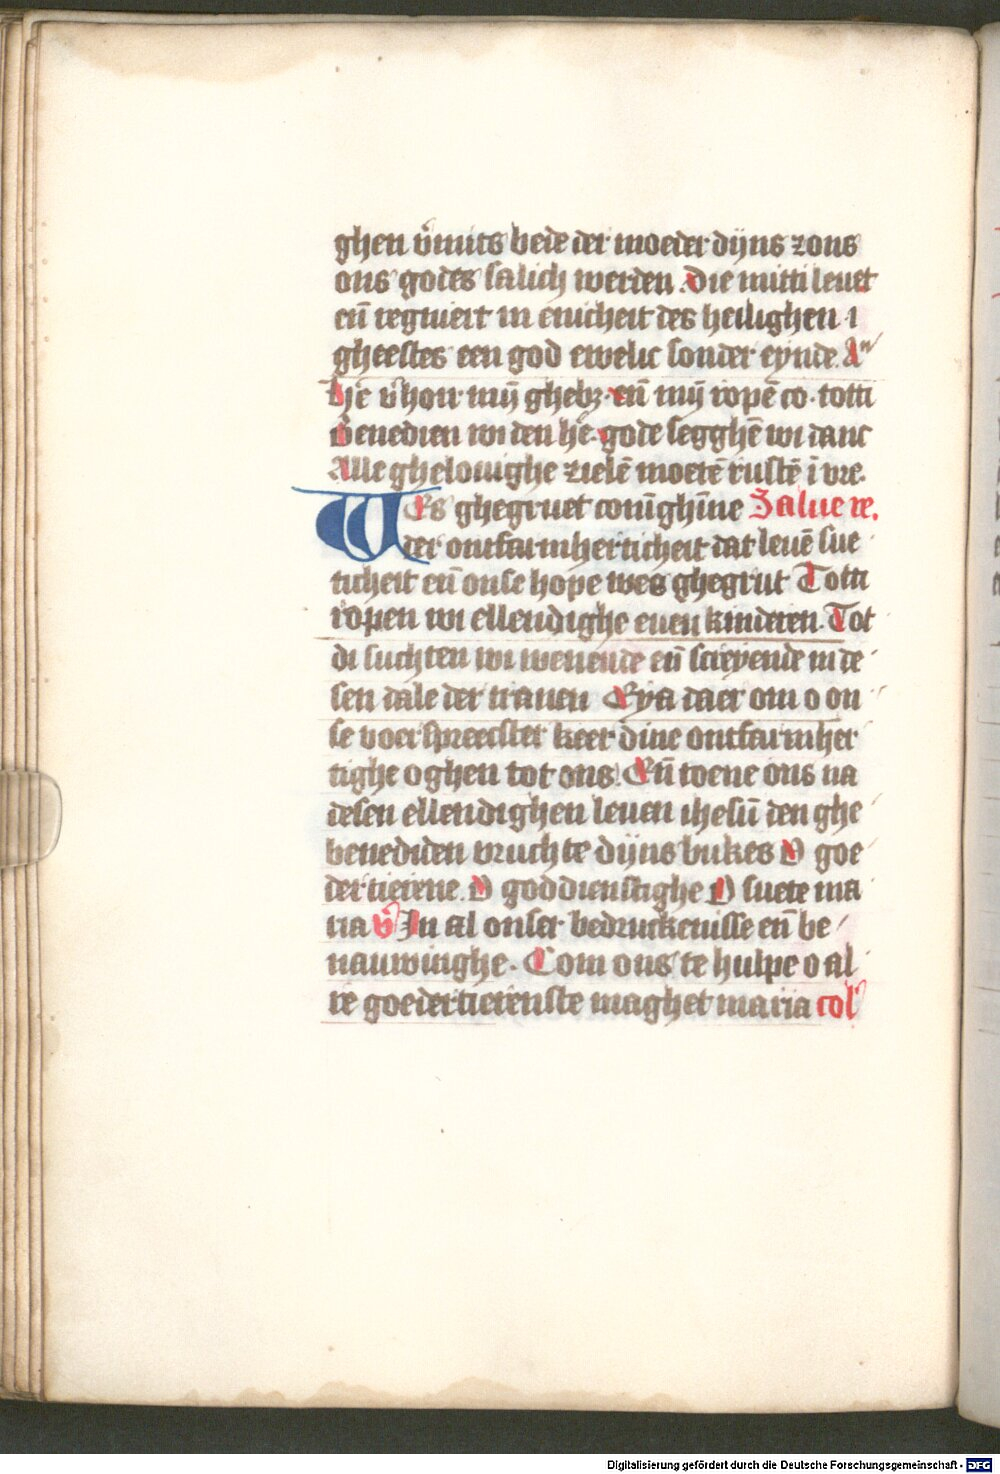 ghen v̄mits bede der moeder dijns zons
ons godes salich werden. Die mitti leuet
eñ regniert in enicheit des heilighen ı
gheestes een god ewelic sonder eynde. Aⁿ
H̄e v̄hoir mij̄ ghebʒ. eñ mij̄ ropē co. totti
Benedien wi den hē. gode segghē wi danc
Alle ghelouighe zielē moetē rustē ī vre.
WEs ghegruet conīghīne Salue re.
der ontfarmherticheit dat leuē sue
ticheit eñ onse hope wes ghegrut Totti
ropen wi ellendighe euen kinderen. Tot
di suchten wi wenende eñ screyende in de
sen dale der tranen Eya daer om o on
se voerspreecster keer dine ontfarmher
tighe oghen tot ons. Eñ toene ons na
desen ellendighen leuen ihesū den ghe
benediden vruchte dijns bukes O goe
dertierene. O goddienstighe O suete ma
ria v̾ In al onser bedruckenisse eñ be
nauwinghe. Com ons te hulpe o al
re goedertierenste maghet maria col̾
Digitalisierung gefördert durch die Deutsche Forschungsgemeinschaft - DFG